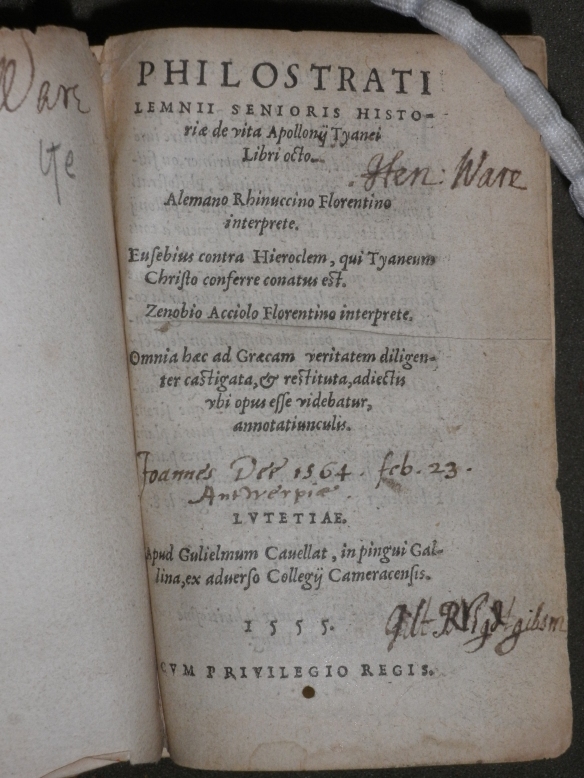 Ware
PHILOSTRATI
LEMNII SENIORIS HISTO-
riæ de vita Apollonij Tyanei
Libri octo.
Hen: Ware
Alemano Rhinuccino Florentino
interprete.
Eusebius contra Hieroclem, qui Tyaneum
Christo conferre conatus est.
Zenobio Acciolo Florentino interprete.
Omnia hæc ad Græcam veritatem diligen-
ter castigata, & restituta, adiectis
vbi opus esse videbatur,
annotatiunculis.
Joannes Dee 1564. feb. 23.
Antwerpiæ.
LVTETIAE.
Apud Gulielmum Cauellat, in pingui Gal-
lina, ex aduerso Collegij Cameracensis.
1555.
CVM PRIVILEGIO REGIS.